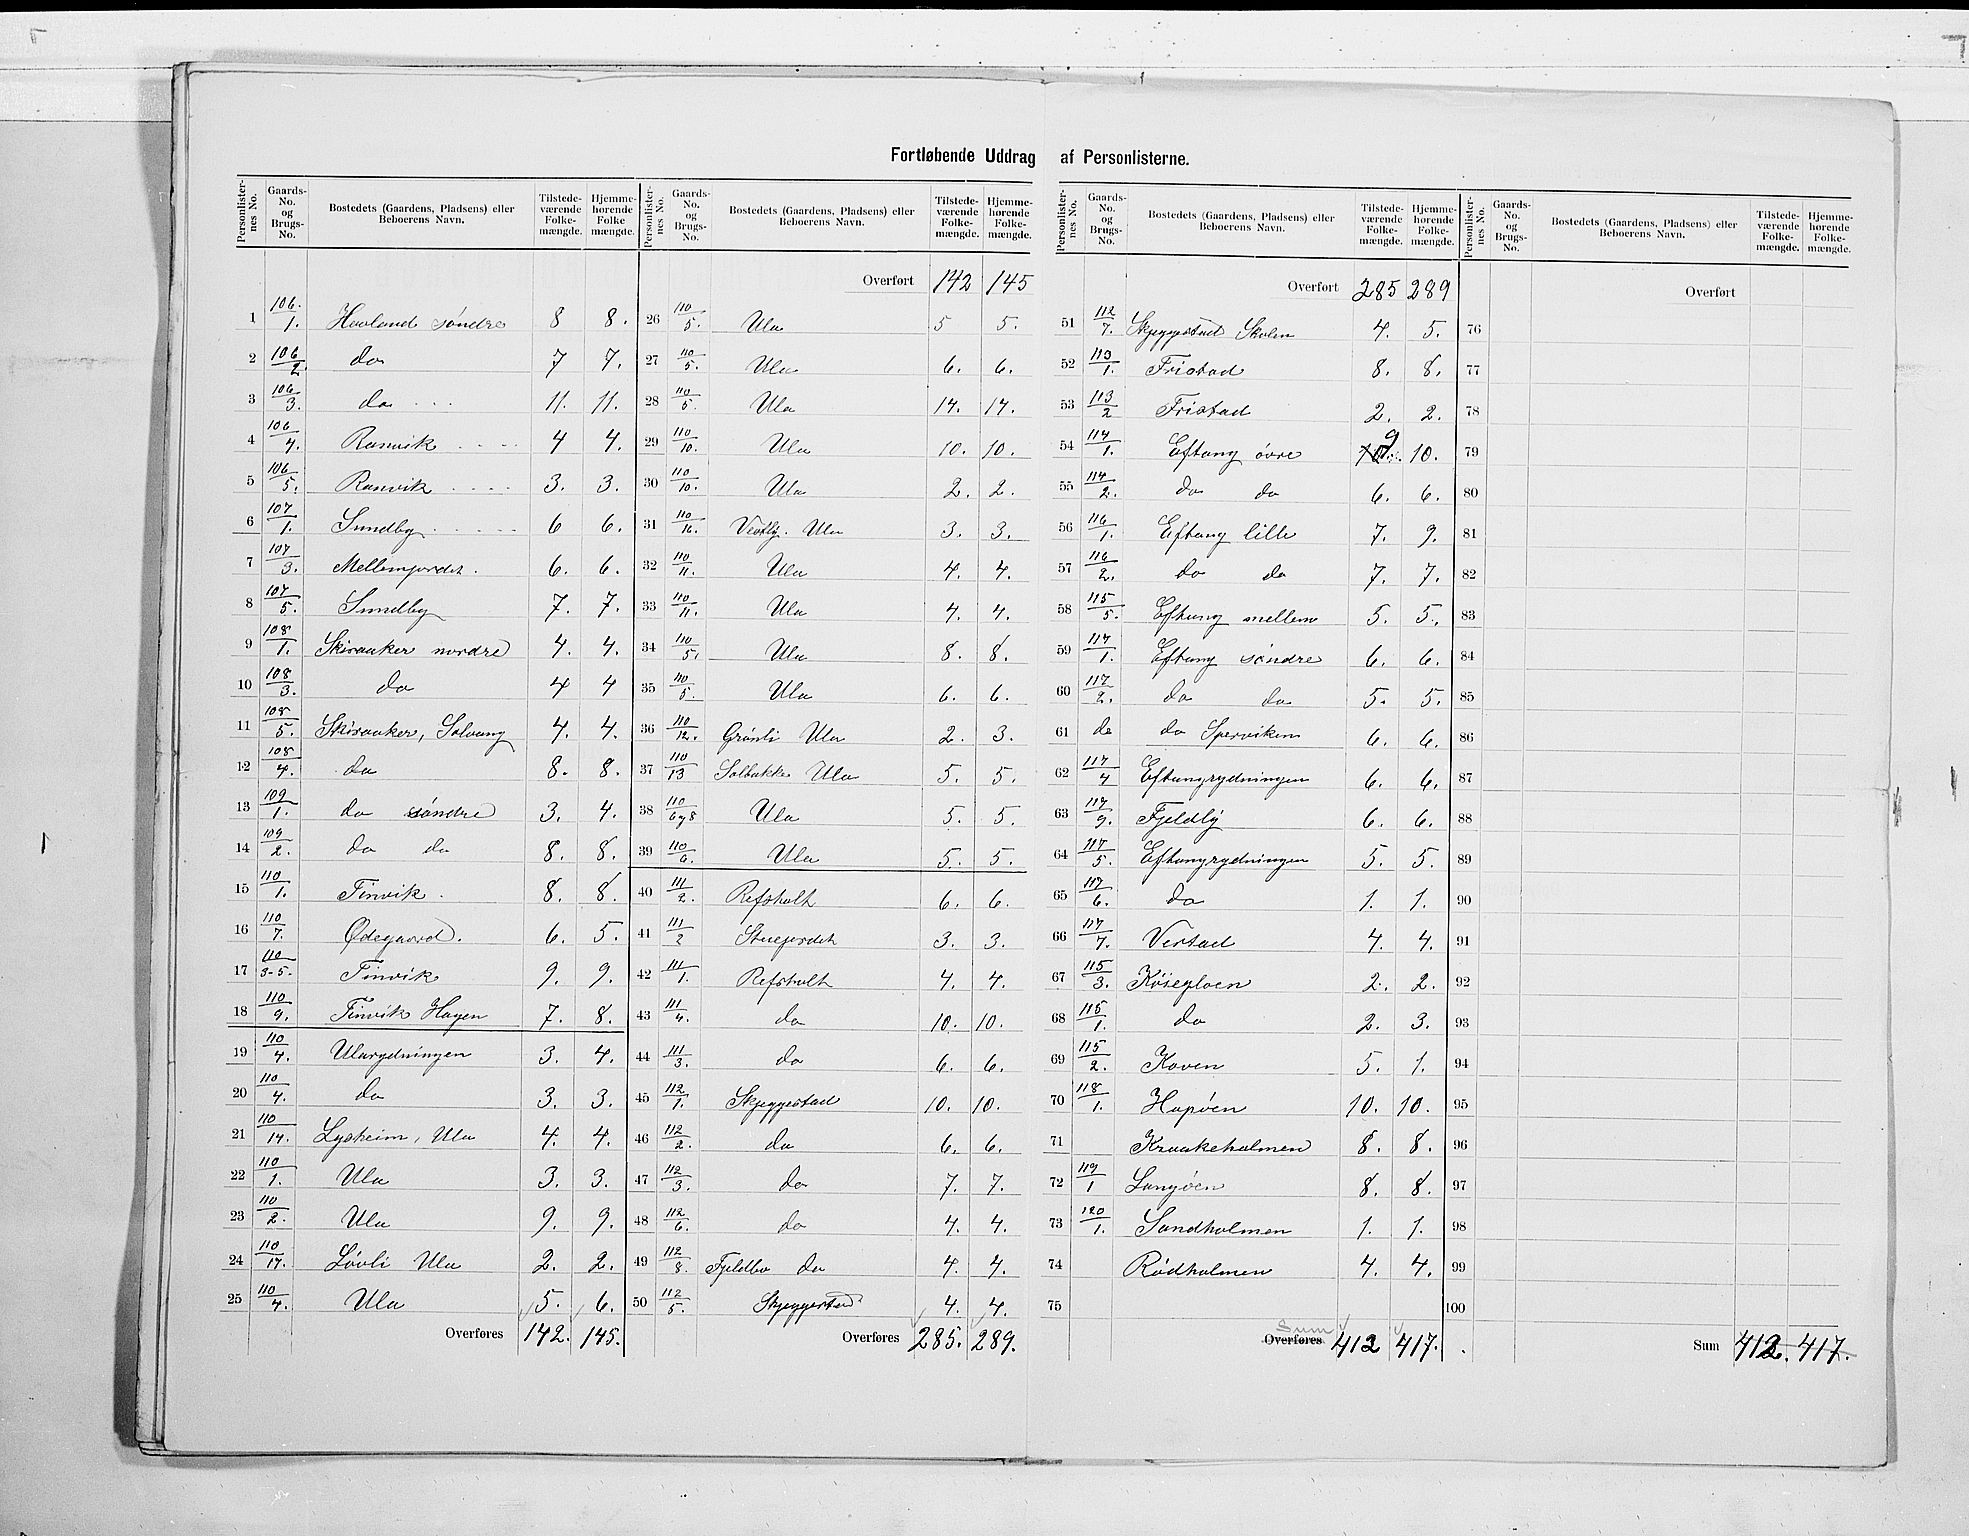 Fortløbende Uddrag af Personlisterne.
Personlister-nes No. | Gaards-No. og Brugs-No. | Bostedets (Gaardens, Pladsens) eller Beboerens Navn. | Tilstede-værende Folke-mængde. | Hjemme-hørende Folke mængde.
1 | 106/1. | Havland søndre | 8 | 8.
2 | 106/2 | do | 7 | 7.
3 | 106/3. | do | 11. | 11.
4 | 106/4. | Ranvik | 4 | 4.
5 | 106/5. | Ranvik | 3. | 3.
6 | 107/1. | Sundby | 6 | 6.
7 | 107/3. | Mellemjordet. | 6. | 6.
8 | 107/5. | Sundby | 7. | 7.
9 | 108/1. | Skiraaker nordre | 4. | 4.
10 | 108/3. | do | 4 | 4
11 | 108/5. | Skiraaker, Solvang | 4. | 4.
12 | 108/4. | do | 8. | 8.
13 | 109/1. | do søndre | 3. | 4.
14 | 109/2. | do do | 8. | 8.
15 | 110/1. | Tinvik. | 8. | 8.
16 | 110/7. | Ødegaard. | 6. | 5.
17 | 110/3-5. | Tinvik | 9. | 9.
18 | 110/9. | Tinvik Hagen | 7. | 8.
19 | 110/4. | Ularydningen | 3. | 4.
20 | 110/4. | do | 3. | 3.
21 | 110/14. | Lysheim, Ula | 4. | 4.
22 | 110/1. | Ula | 3. | 3.
23 | 110/2. | Ula | 9. | 9.
24 | 110/17. | Løvli Ula | 2. | 2.
25 | 110/4. | Ula | 5. | 6.
Overføres 142. 145.
Personlister-nes No. | Gaards-No. og Brugs-No. | Bostedets (Gaardens, Pladsens) eller Beboerens Navn. | Tilstede-værende Folke-mængde. | Hjemme-hørende Folke-mængde.
Overført 142 145
26 | 110/5. | Ula | 5 | 5.
27 | 110/5. | Ula | 6. | 6.
28 | 110/5 | Ula | 14. | 14.
29 | 110/10. | Ula | 10. | 10.
30 | 110/10. | Ula | 2. | 2.
31 | 110/16. | Vestly. Ula | 3. | 3.
32 | 110/11. | Ula | 4. | 4.
33 | 110/11. | Ula | 4. | 4.
34 | 110/5. | Ula | 8. | 8.
35 | 110/5 | Ula | 6. | 6.
36 | 110/12. | Grønli Ula | 2. | 3.
37 | 110/13 | Solbakke Ula | 5. | 5.
38 | 110/6 og 8 | Ula | 5. | 5.
39 | 110/6. | Ula | 5. | 5.
40 | 111/2. | Refsholt | 6. | 6.
41 | 111/2 | Stuejordet | 3. | 3.
42 | 111/1. | Refsholt | 4. | 4.
43 | 111/4. | do | 10. | 10.
44 | 111/3. | do | 6. | 6.
45 | 112/1. | Skjeggestad | 10. | 10.
46 | 112/2. | do | 6. | 6.
47 | 112/3. | do | 7. | 7.
48 | 112/6. | do | 4. | 4.
49 | 112/8. | Fjeldbo do | 4. | 4.
50 | 112/5. | Skjeggestad | 4. | 4.
Overføres 285. 289.
Personlister-nes No. | Gaards-No. og Brugs-No. | Bostedets (Gaardens, Pladsens) eller Beboerens Navn. | Tilstede-værende Folke-mængde. | Hjemme-hørende Folke-mængde.
Overført 285 289
51 | 112/7. | Skjeggestad Skolen | 4. | 5.
52 | 113/1. | Fristad | 8. | 8.
53 | 113/2 | Fristad | 2. | 2.
54 | 114/1. | Eftang øvre | 10. 9 | 10.
55 | 114/2. | do do | 6. | 6.
56 | 116/1. | Eftang lille | 7. | 9.
57 | 116/2. | do do | 7. | 7.
58 | 115/5. | Eftang mellem | 5. | 5.
59 | 117/1. | Eftang søndre | 6. | 6.
60 | 117/2. | do do | 5. | 5.
61 | do | do Spervikem | 6. | 6.
62 | 117/4 | Eftangrydningen | 6. | 6.
63 | 117/9. | Fjeldly | 6. | 6.
64 | 117/5. | Eftangrydningen | 5. | 5.
65 | 117/6. | do | 1. | 1.
66 | 117/7. | Verstad | 4. | 4.
67 | 115/3. | | 2. | 2.
68 | 115/1. | do | 2. | 3.
69 | 115/2. | Koven | 5. | 1.
70 | 118/1. | Hapøen | 10. | 10.
71 | Kraakeholmen | 8. | 8.
72 | 119/1 | Langøen | 8. | 8.
73 | 120/1. | Sandholmen | 1. | 1.
74 | Rødholmen | 4. | 4.
75
Sum
Overføres 412 417.
Personlister-nes No. | Gaards-No. og Brugs-No. | Bostedets (Gaardens, Pladsens) eller Beboerens Navn. | Tilstede-værende Folke-mængde. | Hjemme-hørende Folke-mængde.
Overført
76
77
78
79
80
81
82
83
84
85
86
87
88
89
90
91
92
93
94
95
96
97
98
99
100
Sum 412. 417.